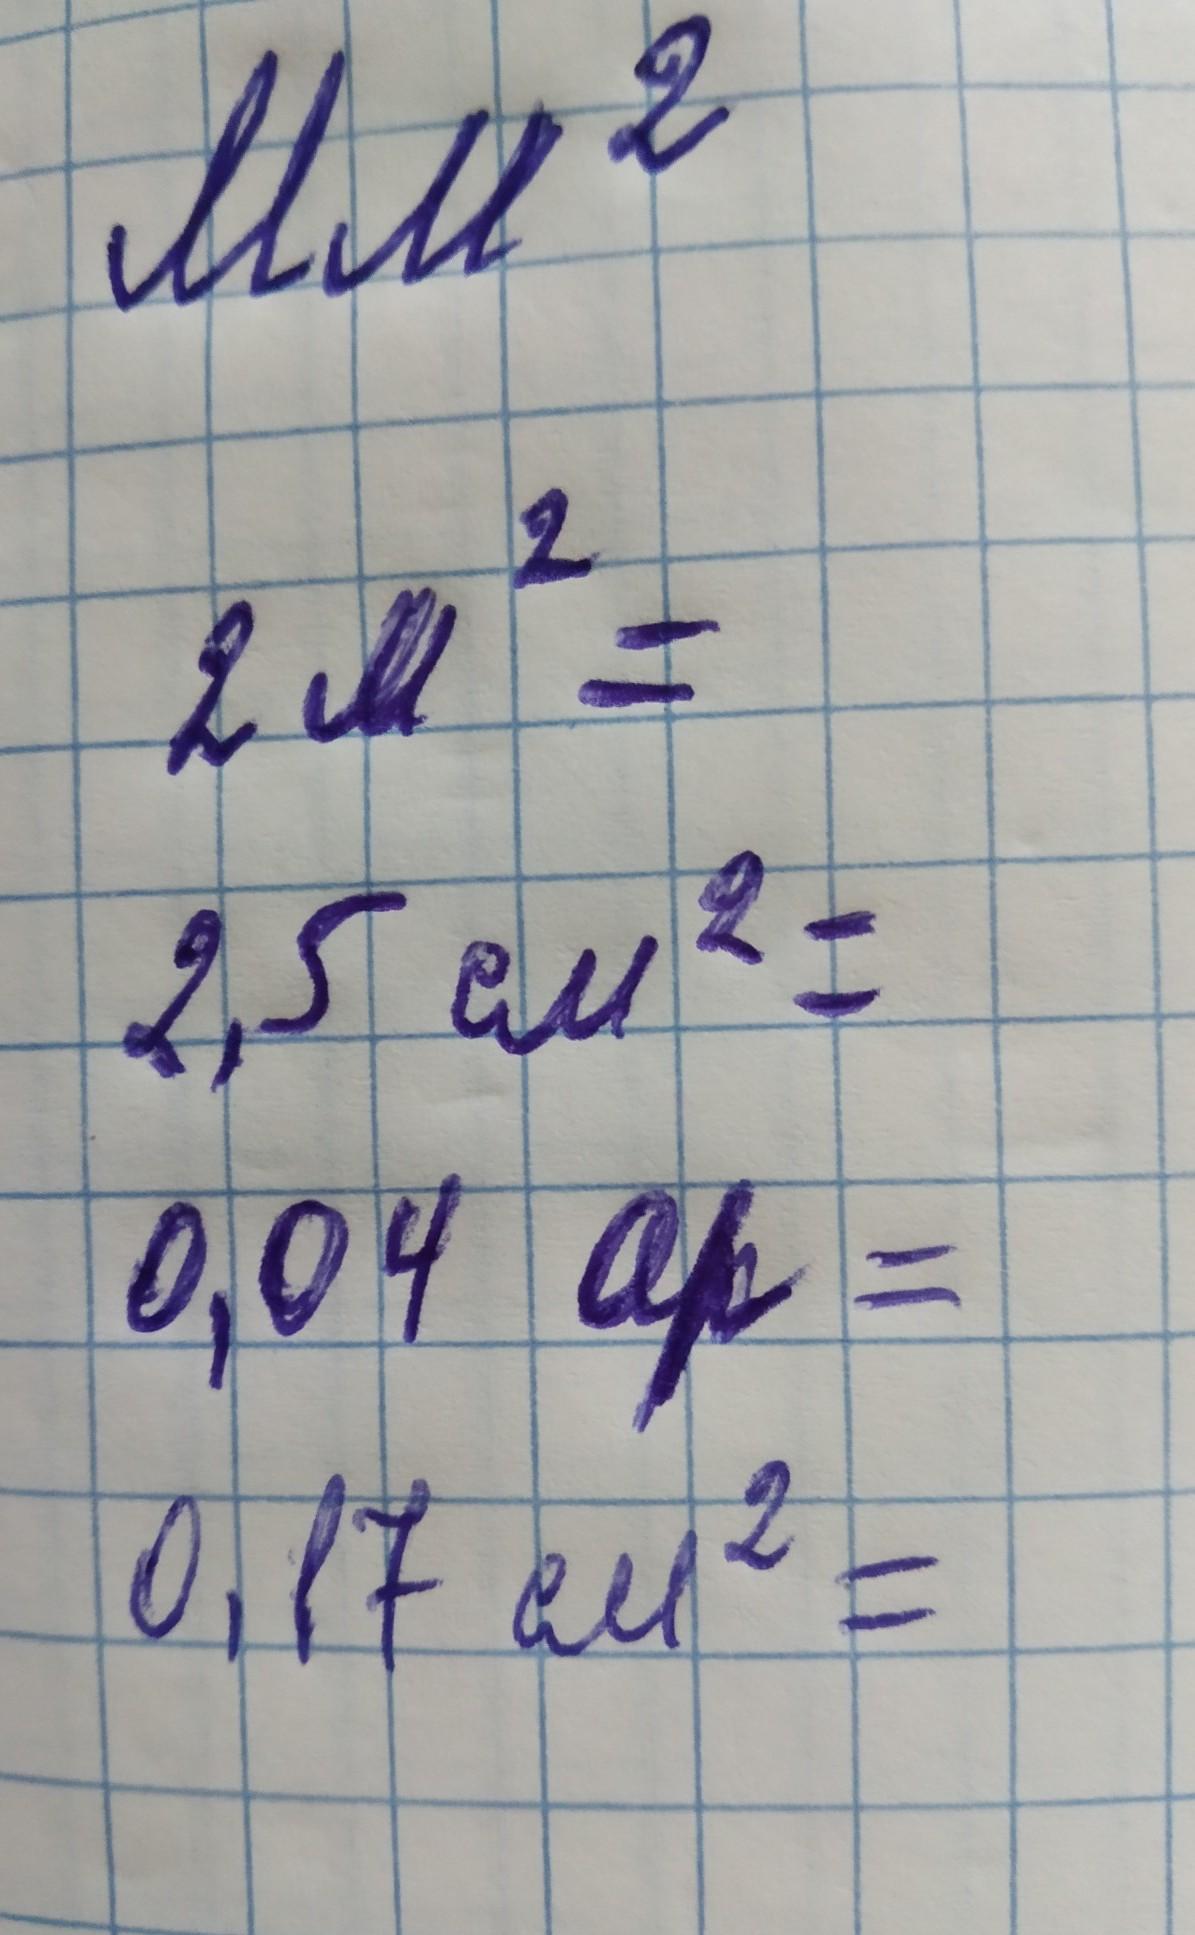 Мм²
2 м² =
2,5 см² =
0,04 ар =
0,17 см² =